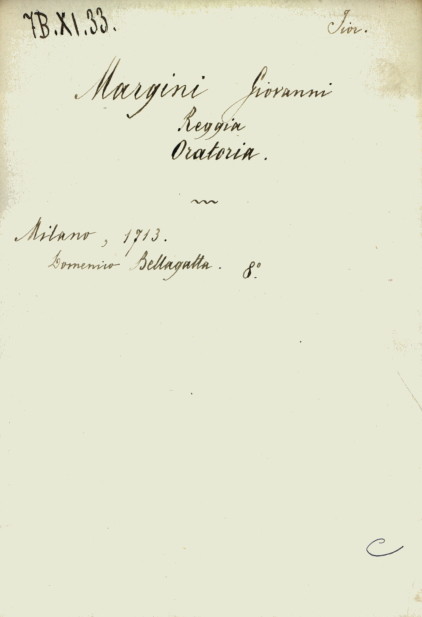 7B.XI.33.
Fior.
Margini Giovanni
Reggia
Oratoria.
Milano, 1713.
Domenico Bellagatta. 8°
C